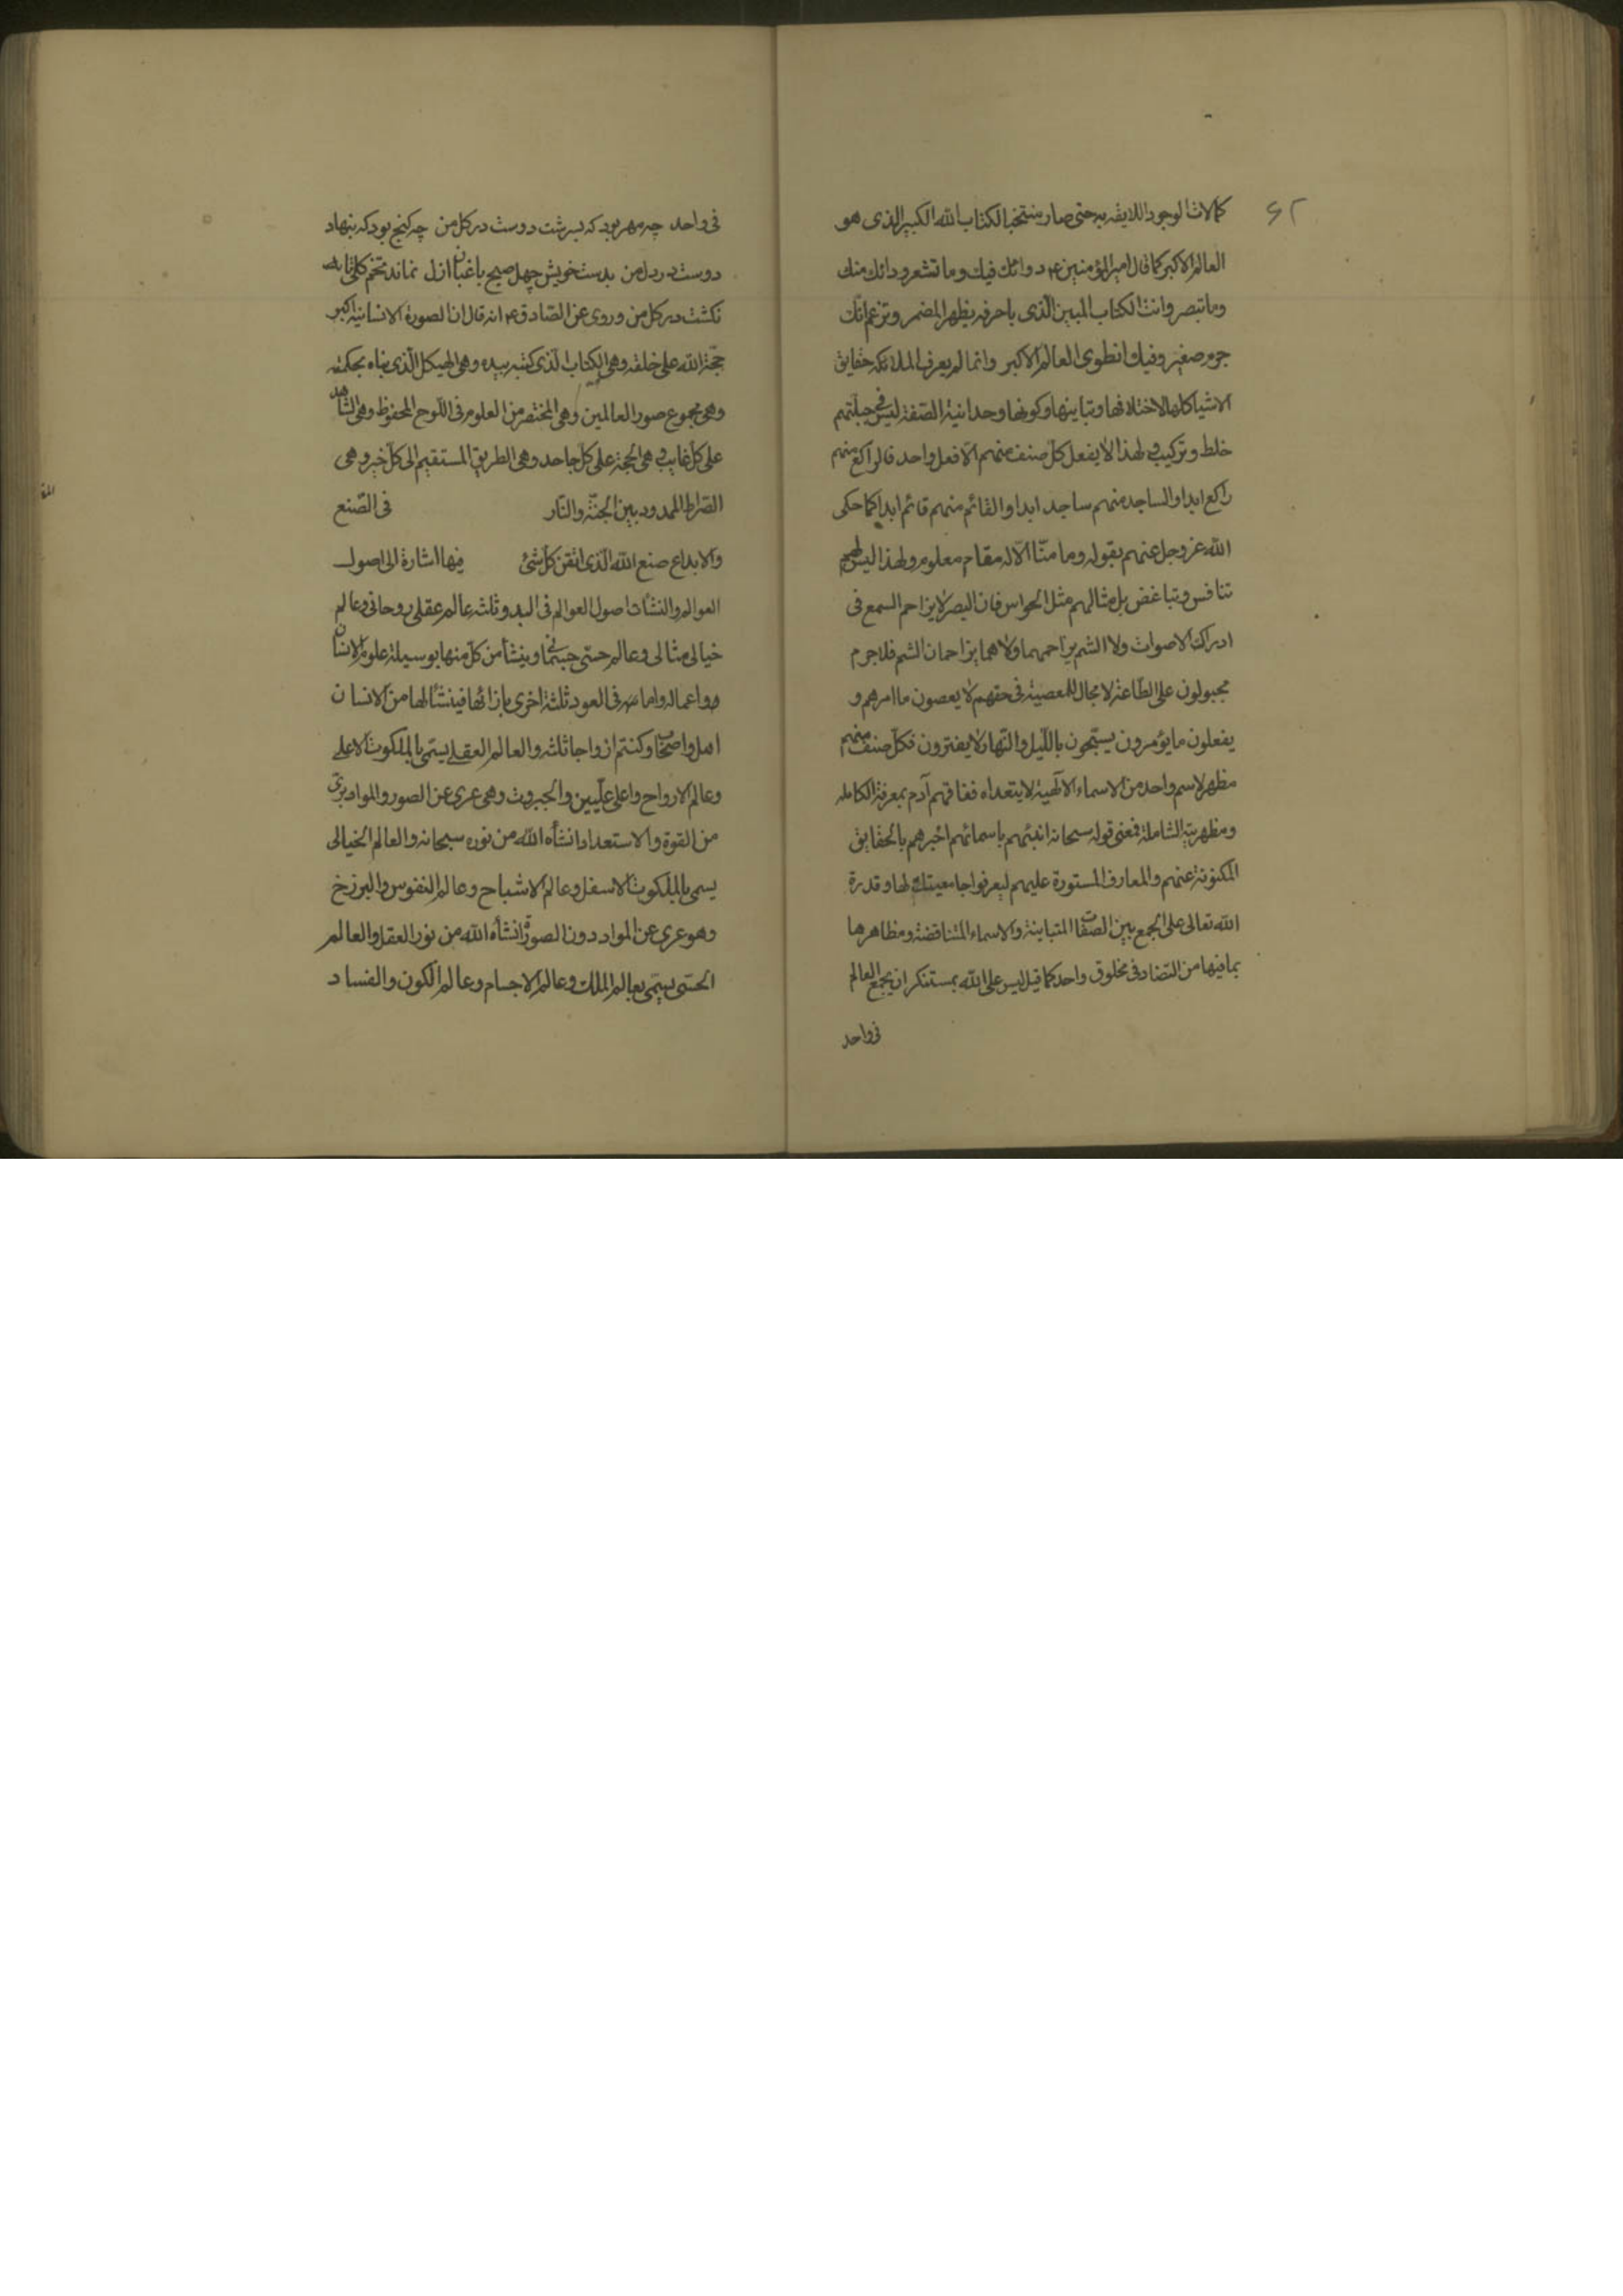 ۶۲
كمالات الوجود اللايقه به حتى صار منتخبا لكتاب الله الكبير الذى هو
العالم الاكبر كما قال امير المؤمنين ع م دوائك فيك وما تشعر ودائك منك
وما تبصر وانت الكتاب المبين الّذى باحرفه يظهر المضمر وتزعم انّك
جرم صغير وفيك انطوى العالم الاكبر وانما لم يعرف الملائكه حقايق
الاشيا كلها لاختلافها وتباينها وكونها وحدانية الصّفة ليس فى جبلّتهم
خلط وتركيب ولهذا لا يفعل كلّ صنف منهم الّا فعل واحد فالراكع منهم
راكع ابدا والساجد منهم ساجد ابدا والقائم منهم قائم ابدا كما حكى
الله عز وجل عنهم بقوله وما منّا الّا له مقام معلوم ولهذا ليس لهم
تنافس وتباغض بل مثالهم مثل الحواس فان البصر لا يزاحم السمع فى
ادراك الاصوات ولا الشم يزاحمهما ولا هما يزاحمان الشم فلا جرم
مجبولون على الطّاعة لا مجال للمعصية فى حقهم لا يعصون ما امرهم و
يفعلون ما يؤمرون يسبّحون باللّيل والنّهار لا يفترون فكلّ صنف منهم
مظهر لاسم واحد من الاسماء الالٓهية لا يتعداه ففاقهم آدم بمعرفة الكامله
ومظهريته الشاملة فمعنى قوله سبحانه انبئهم باسمائهم اخبرهم بالحقايق
المكنونة عنهم والمعارف المستورة عليهم ليعرفوا جامعيتك لها وقدرة
الله تعالى على الجمع بين الصّفات المتباينة والاسماء المتناقضة ومظاهرها
بما فيها من التضاد فى مخلوق واحد كما قيل ليس على الله بمستنكر ان يجمع العالم
فى واحد
فى واحد چه مهر بود كه بسرشت دوست در كل من چه كنج بود كه بنهاد
دوست در دل من بدست خويش چهل صبح باغبان ازل نماند تخم كلى تا
نكشت در كل من وروى عن الصّادق ع م انه قال ان الصورة الانسانية اكبر
حجّة الله على خلقه وهى الكتاب الّذى كتبه بيده وهى الهيكل الّذى بناه بحكمته
وهى مجموع صور العالمين وهى المختصر من العلوم فى اللّوح المحفوظ وهى الشاهد
على كلّ غايب وهى الحجة على كلّ جاحد وهى الطريق المستقيم الى كلّ خير وهى
الصّراط الممدود بين الجنّة والنّار فى الصّنع
والابداع صنع الله الّذى اتقن كلّ شئ فيها اشارة الى اصول
العوالم والنشأت اصول العوالم فى البدو ثلثه عالم عقلى روحانى وعالم
خيالى مثالى وعالم حسّى جسمانى وينشأ من كلّ منها بوسيلة علوم الانسان
واعماله فى العود ثلثة اخرى بازائها فينشأ لها من الانسان
اهل واصحاب وكنتم ازواجا ثلثه والعالم العقلى يسمّى بالملكوت الاعلى
وعالم الارواح واعلى علّيين والجبروت وهى عرى عن الصور والمواد برئ
من القوة والاستعداد انشأه الله من نوره سبحانه والعالم الخيالى
يسمى بالملكوت الاسفل وعالم الاشباح وعالم النفوس والبرزخ
وهو عرى عن المواد دون الصورة انشأه الله من نور العقل والعالم
الحسّى يسمّى بعالم الملك وعالم الاجسام وعالم الكون والفساد